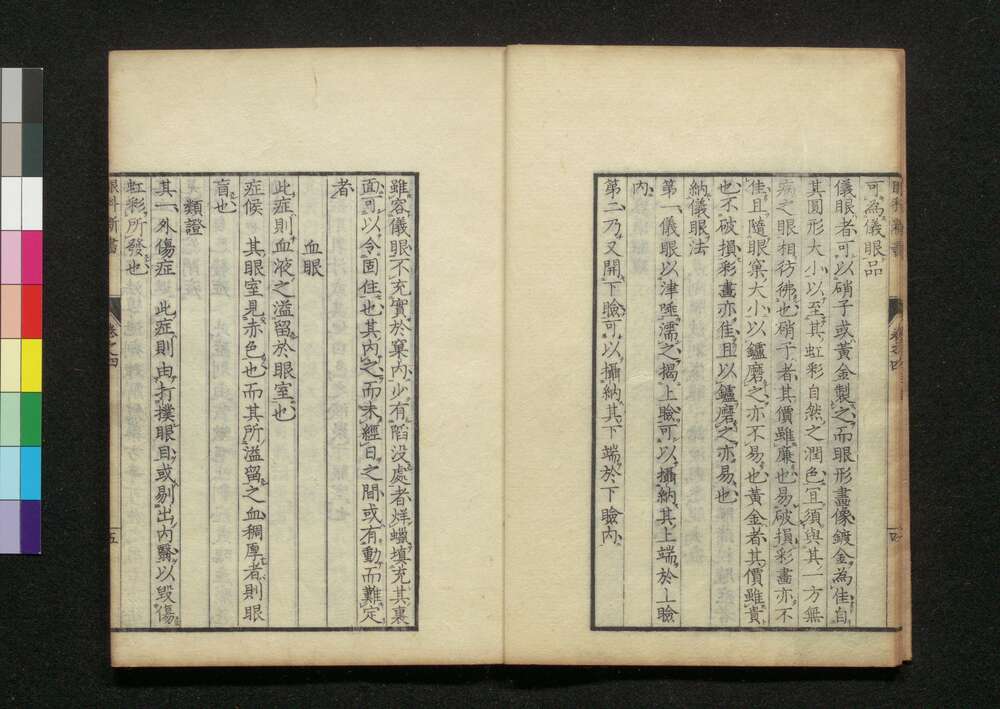 可為儀眼品
儀眼者可以硝子或黃金製之而眼形畫像鍍金為佳自
其圓形大小以至其虹彩自然之潤色宜須與其一方無
病之眼相彷彿也硝子者其價雖廉也易破損彩畫亦不
佳且隨眼窠大小以鑢磨之亦不易也黃金者其價雖貴
也不破損彩畫亦佳且以鑢磨之亦易也
納儀眼法
第一儀眼以津唾濡之揭上瞼可以攝納其上端於上瞼
內
第二乃又開下瞼可以攝納其下端於下瞼內
卷之四
雖容儀眼不充實於窠內少有陷没處者烊蠟填充其裏
面可以令固住也其內之而未經日之間或有動而難定
者
血眼
此症則血液之溢留於眼室也
症候 其眼室見赤色也而其所溢留之血稠厚者則眼
盲也
類證
其一外傷症 此症則由打撲眼目或剔出內翳以毀傷
虹彩所發也
眼科新書
卷之四
五